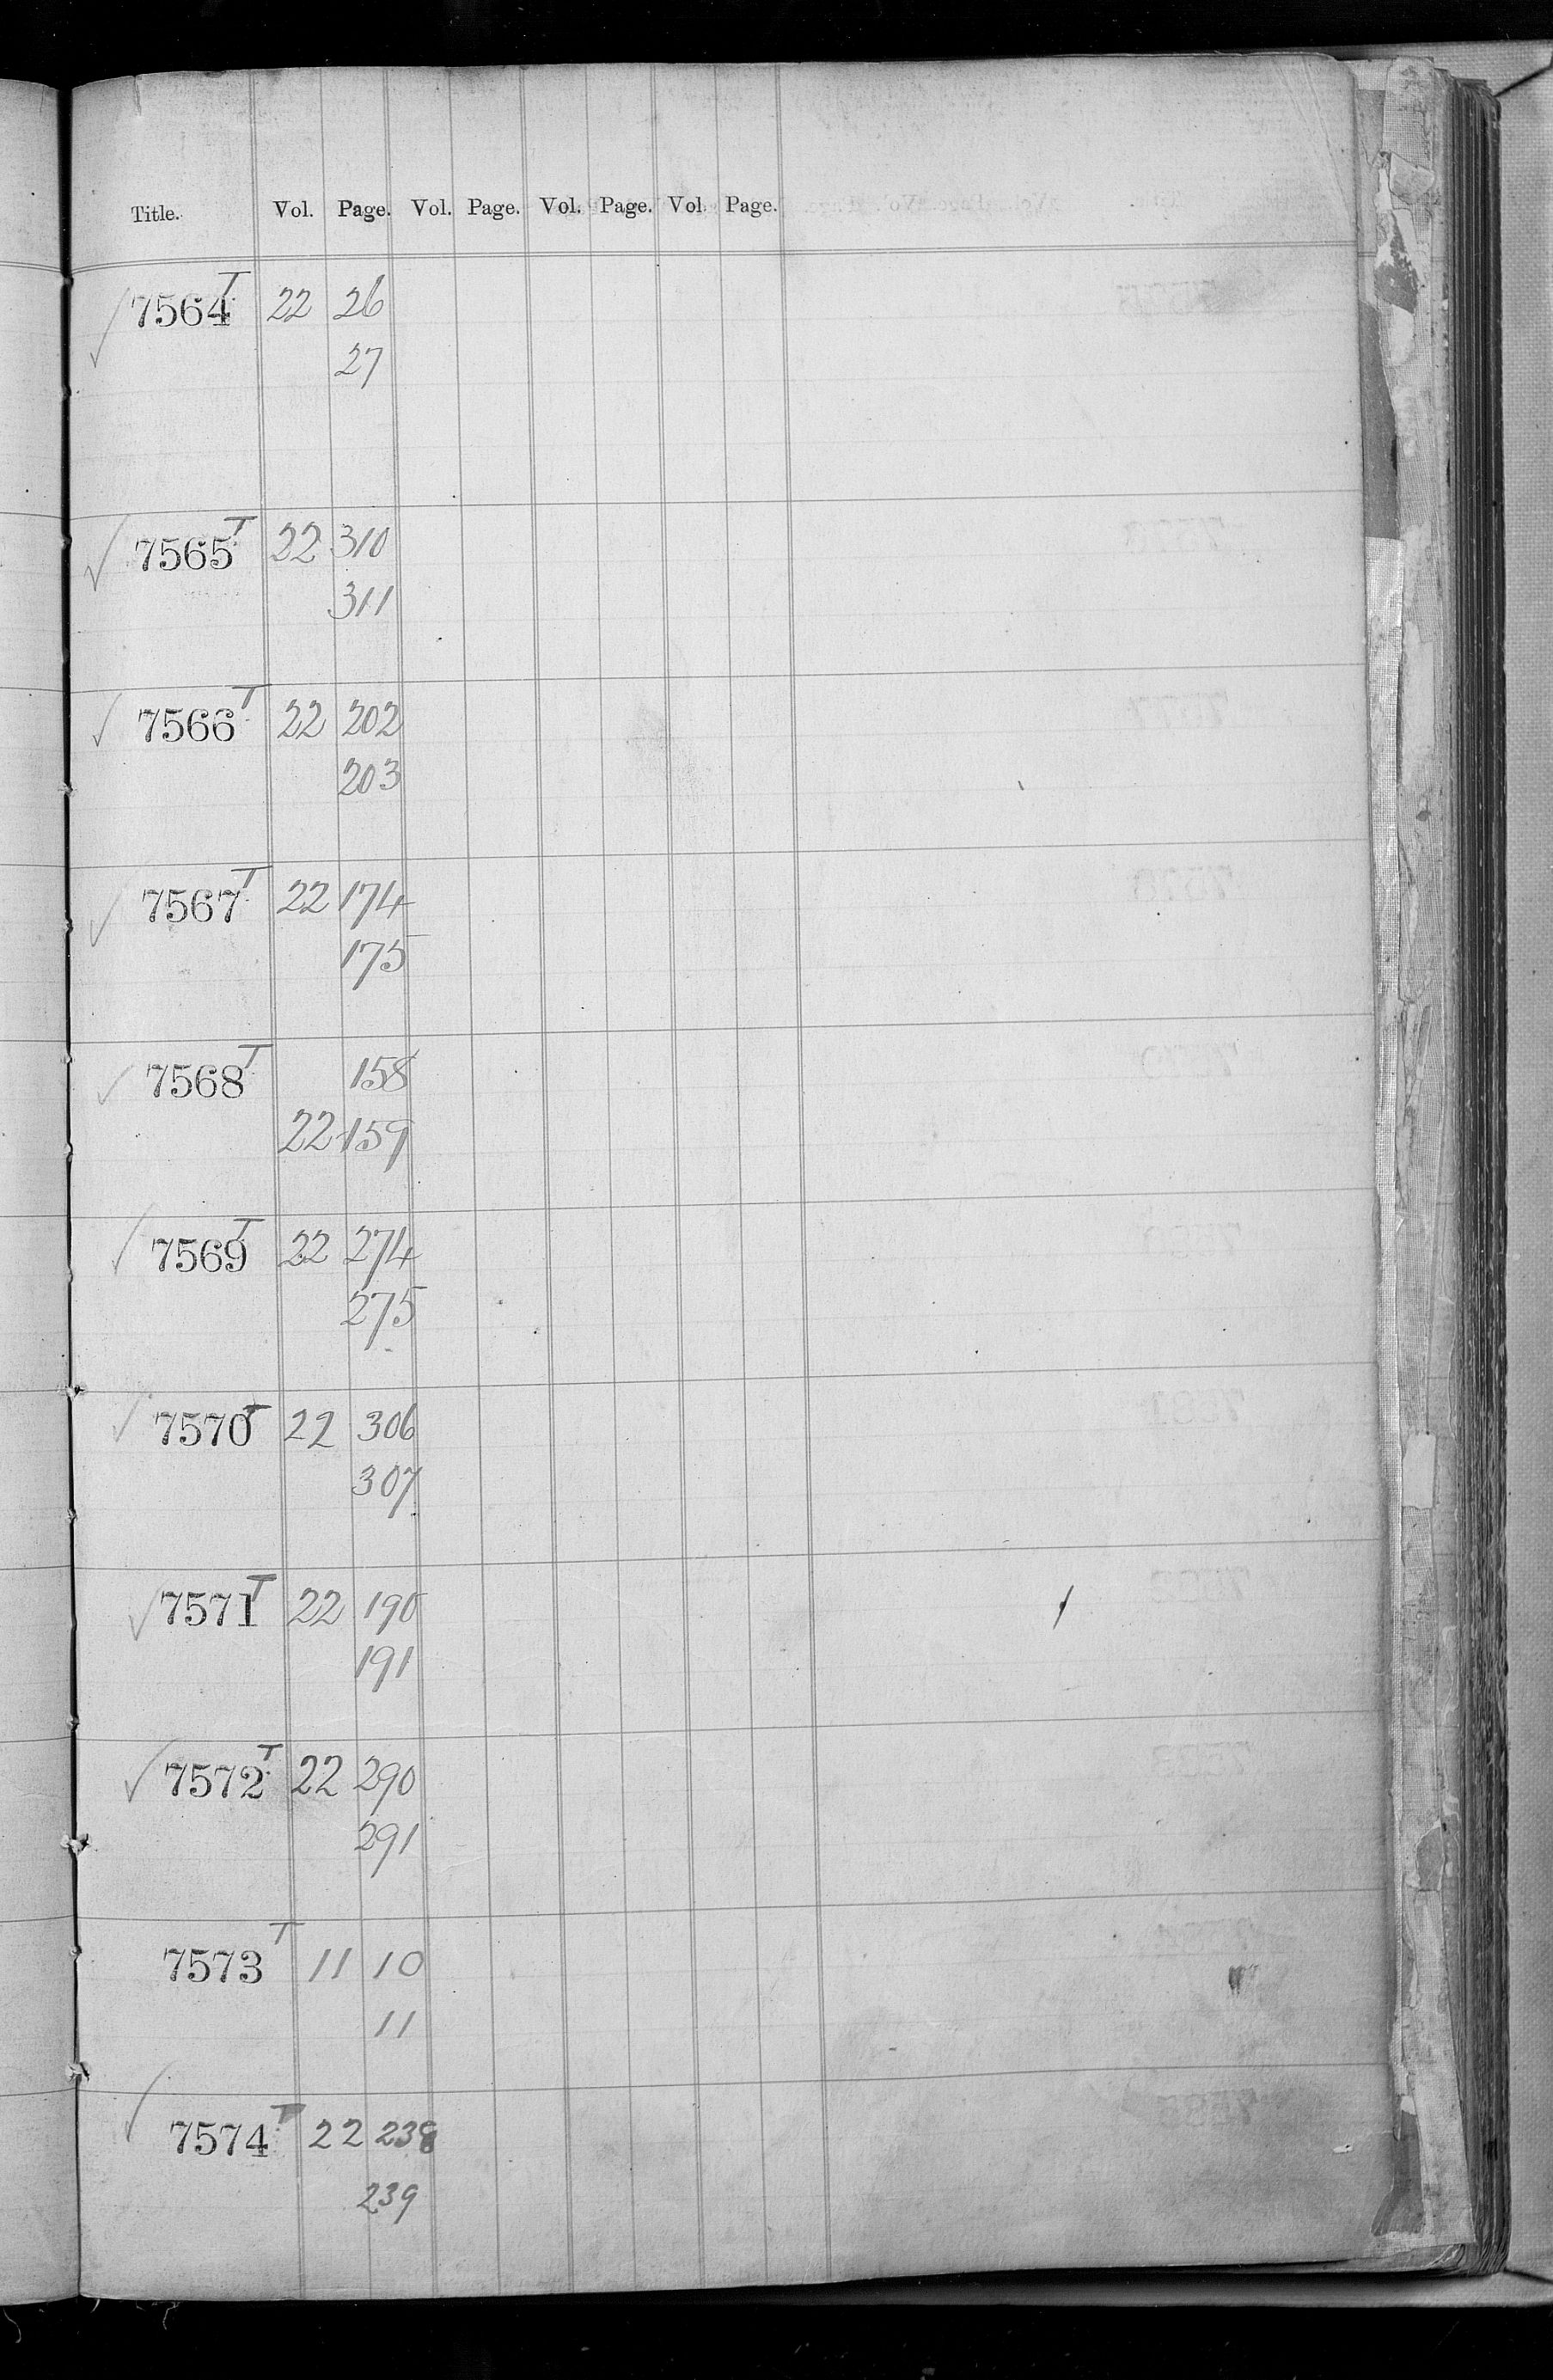 Title. Vol. Page. Vol. Page. Vol. Page. Vol. Page.
✓ 7564 T 22 26
27
✓ 7565 T 22 310
311
✓ 7566 T 22 202
203
✓ 7567 T 22 174
175
✓ 7568 T 158
22 159
✓ 7569 T 22 274
275
✓ 7570 T 22 306
307
✓ 7571 T 22 190
191
✓ 7572 T 22 290
291
7573 T 11 10
11
✓ 7574 T 22 238
239